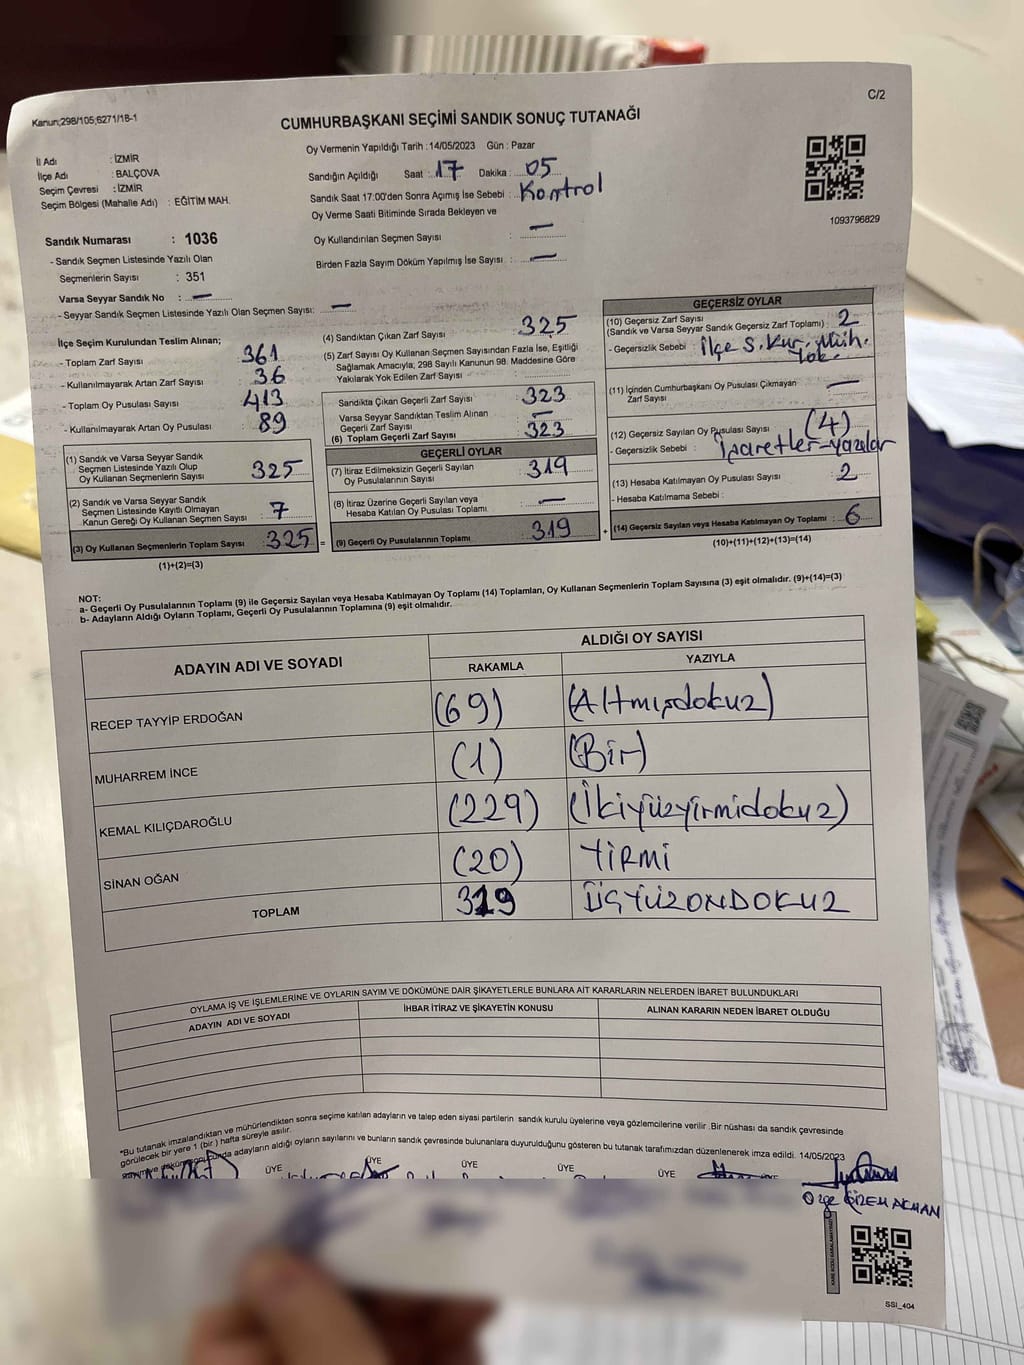 Kanun;298/105;6271/18-1
C/2
CUMHURBAŞKANI SEÇİMİ SANDIK SONUÇ TUTANAĞI
İl Adı : İZMİR
İlçe Adı : BALÇOVA
Seçim Çevresi : İZMİR
Seçim Bölgesi (Mahalle Adı) : EĞİTİM MAH.
Oy Vermenin Yapıldığı Tarih :14/05/2023 Gün : Pazar
Sandığın Açıldığı Saat : 17 Dakika : 05
Sandık Saat 17:00'den Sonra Açımış İse Sebebi : Kontrol
Oy Verme Saati Bitiminde Sırada Bekleyen ve
Oy Kullandırılan Seçmen Sayısı : —
Birden Fazla Sayım Döküm Yapılmış İse Sayısı : —
1093796829
Sandık Numarası : 1036
- Sandık Seçmen Listesinde Yazılı Olan
Seçmenlerin Sayısı : 351
Varsa Seyyar Sandık No : —
- Seyyar Sandık Seçmen Listesinde Yazılı Olan Seçmen Sayısı: —
İlçe Seçim Kurulundan Teslim Alınan;
- Toplam Zarf Sayısı 361
- Kullanılmayarak Artan Zarf Sayısı 36
- Toplam Oy Pusulası Sayısı 413
- Kullanılmayarak Artan Oy Pusulası 89
(1) Sandık ve Varsa Seyyar Sandık
Seçmen Listesinde Yazılı Olup
Oy Kullanan Seçmenlerin Sayısı : 325
(2) Sandık ve Varsa Seyyar Sandık
Seçmen Listesinde Kayıtlı Olmayan
Kanun Gereği Oy Kullanan Seçmen Sayısı : 7
(3) Oy Kullanan Seçmenlerin Toplam Sayısı : 325 =
(1)+(2)=(3)
(4) Sandıktan Çıkan Zarf Sayısı : 325
(5) Zarf Sayısı Oy Kullanan Seçmen Sayısından Fazla İse, Eşitliği
Sağlamak Amacıyla, 298 Sayılı Kanunun 98. Maddesine Göre
Yakılarak Yok Edilen Zarf Sayısı :
Sandıkta Çıkan Geçerli Zarf Sayısı : 323
Varsa Seyyar Sandıktan Teslim Alınan
Geçerli Zarf Sayısı : —
(6) Toplam Geçerli Zarf Sayısı : 323
GEÇERLİ OYLAR
(7) İtiraz Edilmeksizin Geçerli Sayılan
Oy Pusulalarının Sayısı : 319
(8) İtiraz Üzerine Geçerli Sayılan veya
Hesaba Katılan Oy Pusulası Toplamı : —
(9) Geçerli Oy Pusulalarının Toplamı : 319 +
GEÇERSİZ OYLAR
(10) Geçersiz Zarf Sayısı
(Sandık ve Varsa Seyyar Sandık Geçersiz Zarf Toplamı) : 2
- Geçersizlik Sebebi : İlçe S. Kur. Müh.
Yok.
(11) İçinden Cumhurbaşkanı Oy Pusulası Çıkmayan
Zarf Sayısı : —
(12) Geçersiz Sayılan Oy Pusulası Sayısı : (4)
- Geçersizlik Sebebi : İşaretler-yazılar
(13) Hesaba Katılmayan Oy Pusulası Sayısı : 2
- Hesaba Katılmama Sebebi :
(14) Geçersiz Sayılan veya Hesaba Katılmayan Oy Toplamı : 6
(10)+(11)+(12)+(13)=(14)
NOT:
a- Geçerli Oy Pusulalarının Toplamı (9) ile Geçersiz Sayılan veya Hesaba Katılmayan Oy Toplamı (14) Toplamları, Oy Kullanan Seçmenlerin Toplam Sayısına (3) eşit olmalıdır. (9)+(14)=(3)
b- Adayların Aldığı Oyların Toplamı, Geçerli Oy Pusulalarının Toplamına (9) eşit olmalıdır.
ADAYIN ADI VE SOYADI
ALDIĞI OY SAYISI
RAKAMLA YAZIYLA
RECEP TAYYİP ERDOĞAN (69) (Altmışdokuz)
MUHARREM İNCE (1) (Bir)
KEMAL KILIÇDAROĞLU (229) (İkiyüzyirmidokuz)
SİNAN OĞAN (20) YİRMİ
TOPLAM 319 ÜÇYÜZONDOKUZ
OYLAMA İŞ VE İŞLEMLERİNE VE OYLARIN SAYIM VE DÖKÜMÜNE DAİR ŞİKAYETLERLE BUNLARA AİT KARARLARIN NELERDEN İBARET BULUNDUKLARI
ADAYIN ADI VE SOYADI İHBAR İTİRAZ VE ŞİKAYETİN KONUSU ALINAN KARARIN NEDEN İBARET OLDUĞU
*Bu tutanak imzalandıktan ve mühürlendikten sonra seçime katılan adayların ve talep eden siyasi partilerin sandık kurulu üyelerine veya gözlemcilerine verilir .Bir nüshası da sandık çevresinde
görülecek bir yere 1 (bir ) hafta süreyle asılır.
adayların aldığı oyların sayılarını ve bunların sandık çevresinde bulunanlara duyurulduğunu gösteren bu tutanak tarafımızdan düzenlenerek imza edildi. 14/05/2023
ÜYE ÜYE ÜYE ÜYE ÜYE ÜYE
Özge GİZEM AKMAN
SSI_404